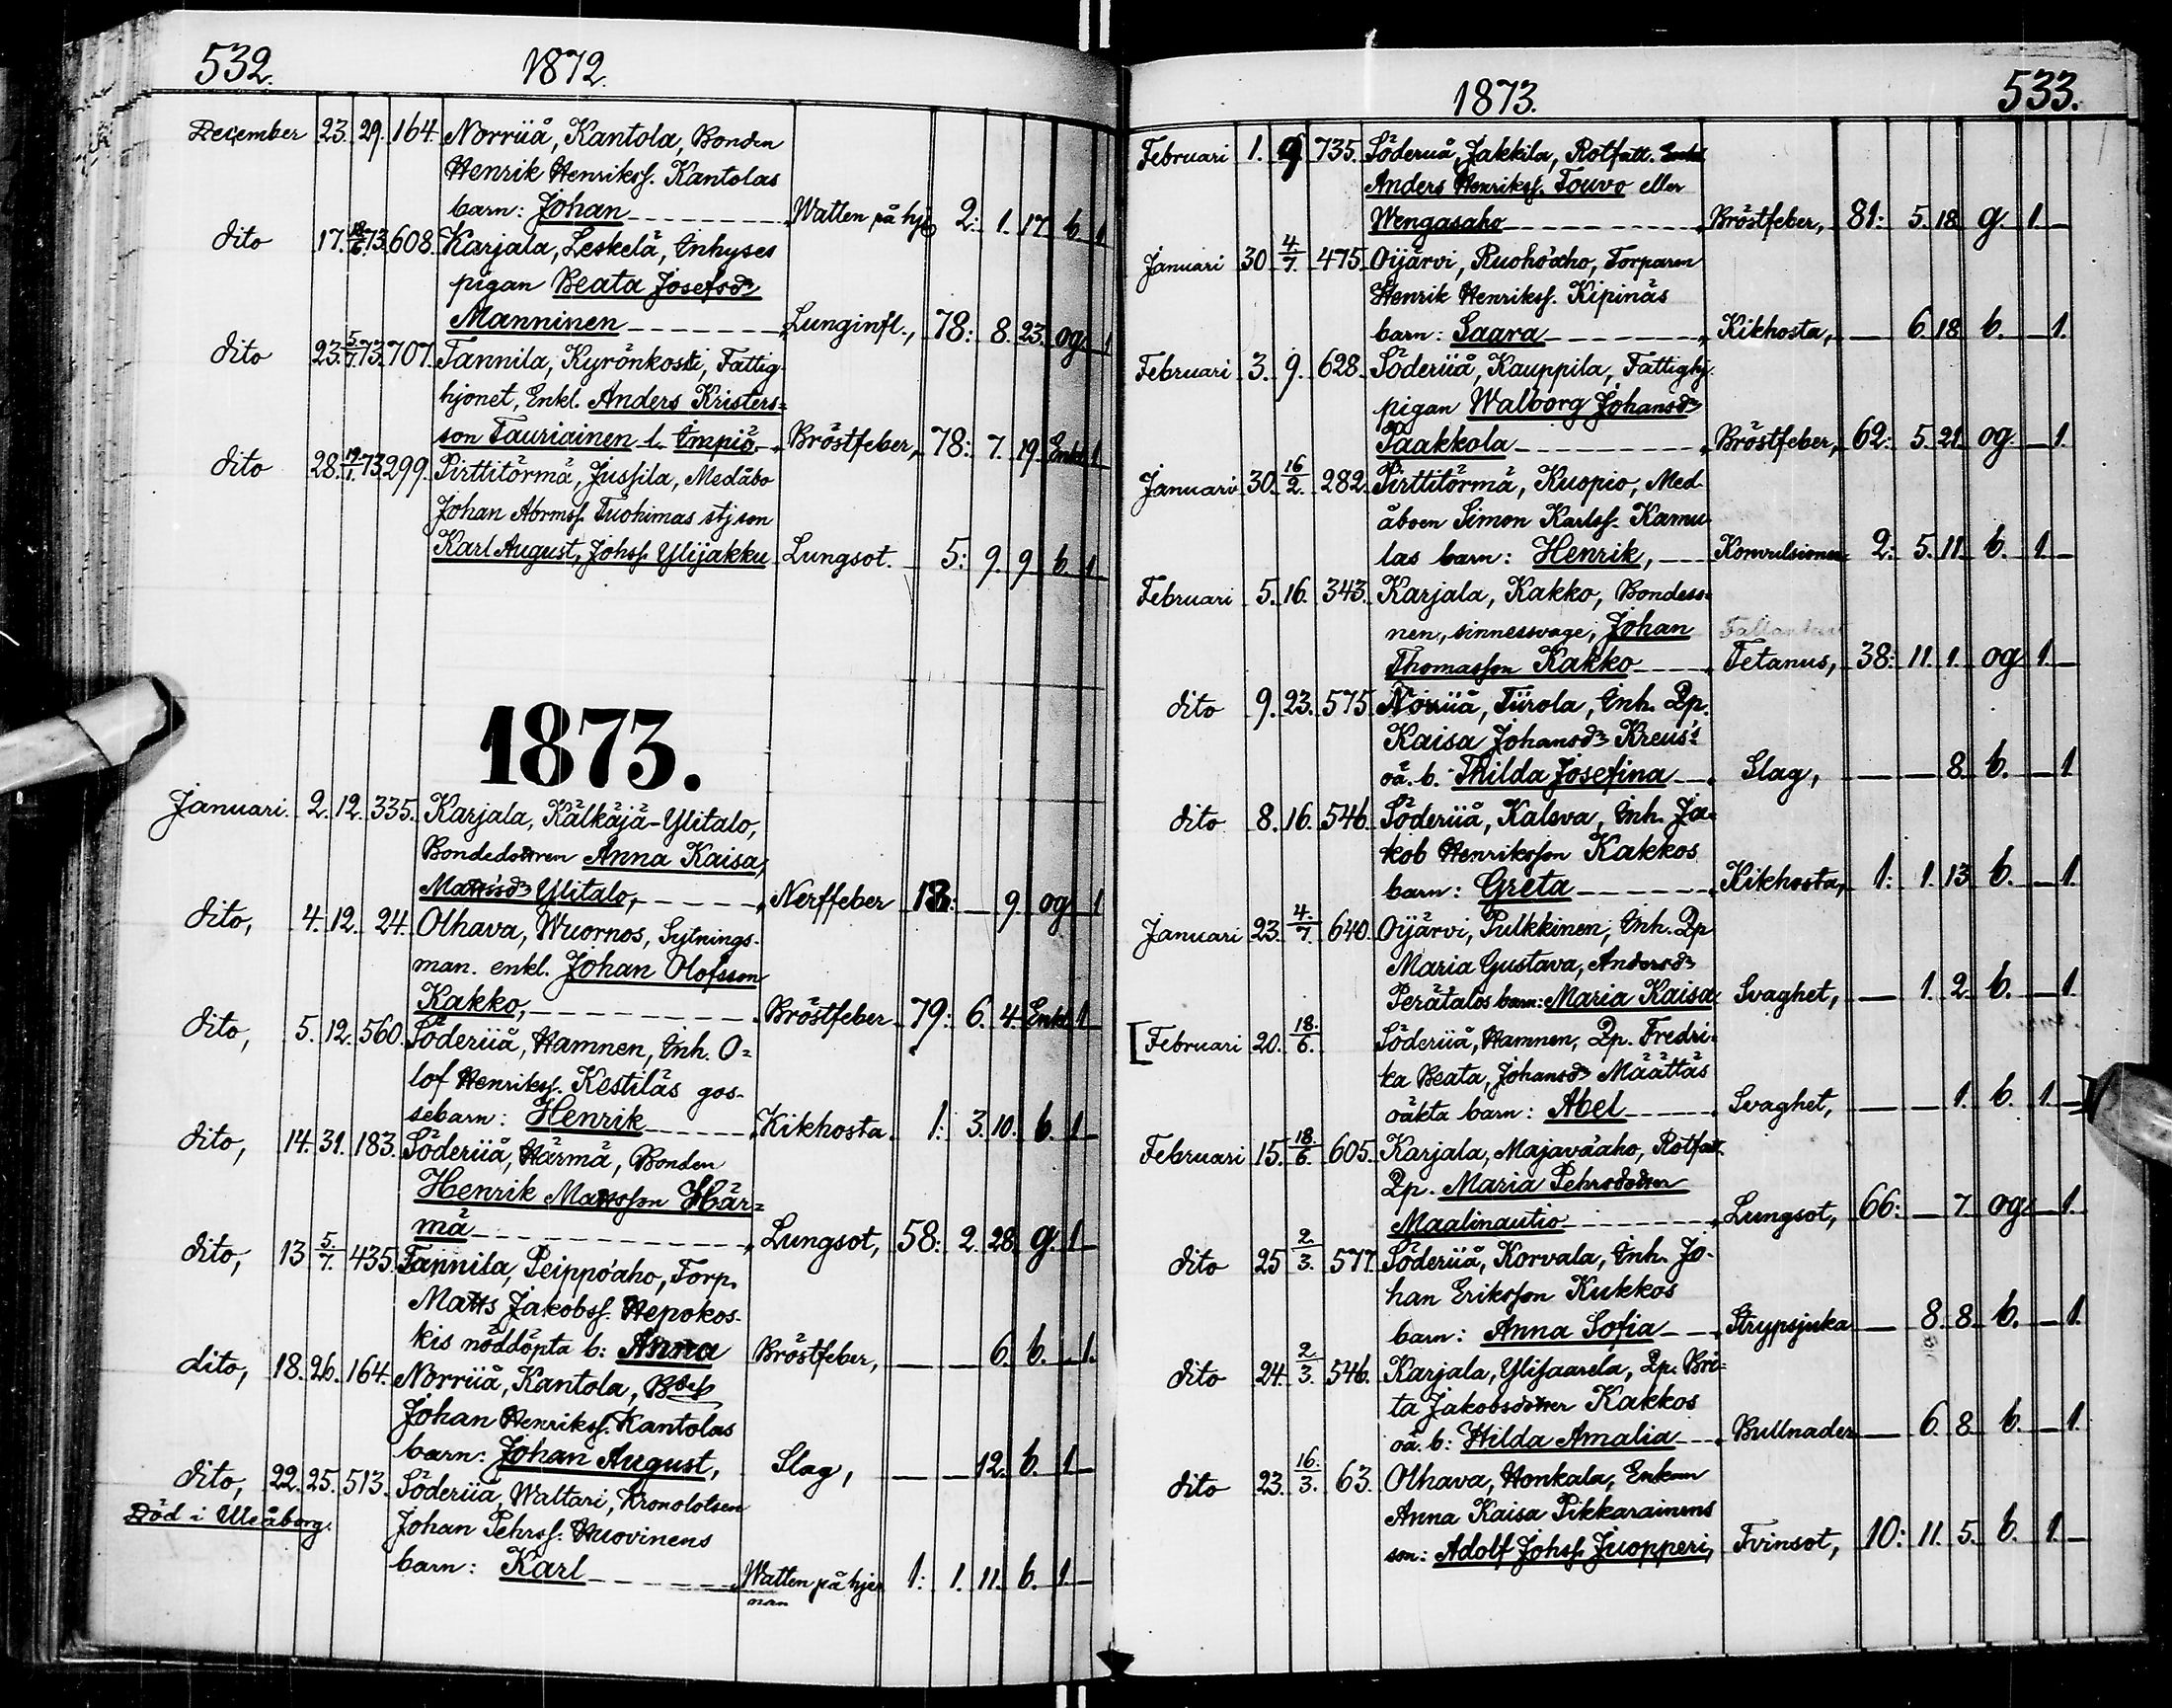 532. 1872.
December 23. 29. 164. Norriiå, Kantola, Bonden
Henrik Henrikss. Kantolas
barn: Johan Watten på hje 2: 1. 17. b. 1
dito 17. 18/6.73. 608. Karjala, Leskelä, Inhyses
pigan Beata Josefsdr
Manninen Lunginfl., 78: 8. 23. og. 1
dito 23. 5/7.73. 707. Tannila, Kyrönkoski, Fattig-
hjonet, Enkl. Anders Kristers=
son Tauriainen l. Impiö Bröstfeber, 78: 7. 19. Enkl 1
dito 28. 73. 299. Pirttitörmä, Jussila, Medåbo
Johan Abrmss. Tuohimas stjson
Karl August, Johss. Ylijakku Lungsot. 5: 9. 9. b. 1
1873.
Januari. 2. 12. 335. Karjala, Kälkäjä-Ylitalo,
Bondedottren Anna Kaisa,
Mattsdr Ylitalo, Nerffeber 13: 9. og 1
dito, 4. 12. 24. Olhava, Wuornos, Sytnings-
man. enkl. Johan Olofsson
Kakko, Bröstfeber 79: 6. 4. Enkl 1
dito, 5. 12. 560. Söderiiå, Hamnen, Inh. O=
lof Henrikss. Kestiläs gos-
sebarn: Henrik Kikhosta 1: 3. 10. b. 1
dito, 14. 31. 183. Söderiiå, Härmä, Bonden
Henrik Mattsson Här=
mä Lungsot, 58: 2. 28. g. 1
dito, 13 5./7. 435. Tannila, Peippo'aho, Torp.
Matts Jakobss. Hepokos-
kis nöddöpta b: Anna Bröstfeber, 6. b. 1.
dito, 18. 26. 164. Norriiå, Kantola, Bdes
Johan Henrikss. Kantolas
barn: Johan August, Slag, 12. b. 1
dito, 22. 25. 513. Söderiiå, Waltari, Kronolotsen
Död i Uleåborg. Johan Pehrss. Huovinens
barn: Karl Watten på hjer 1: 1. 11. b. 1
nan
1873. 533.
Februari 1. 9. 735. Söderiiå, Jakkila, Rotfatt.
Anders Henrikss. Touvo eller
Wengasaho Bröstfeber, 81: 5. 18. g. 1.
Januari 30 4./7. 475. Oijärvi, Ruoho'aho, Torparen
Henrik Henrikss. Kipinäs
barn: Saara Kikhosta, 6. 18. b. 1.
Februari 3. 9. 628. Söderiiå, Kauppila, Fattighj.
pigan Walborg Johansdr
Paakkola Bröstfeber, 62: 5. 21. og 1.
Januari 30. 16/2. 282. Pirttitörmä, Kuopio, Med-
åboen Simon Karlss. Kamu-
las barn: Henrik, Konvulsioner 2: 5. 11. b. 1.
Februari 5. 16. 343. Karjala, Kakko, Bondeso-
nen, sinnessvage, Johan
Thomasson Kakko Tetanus, 38: 11. 1. og 1.
dito 9. 23. 575. Norriiå, Tiirola, Inh. Qp.
Kaisa Johansdr Kreus's
oä. b. Thilda Josefina Slag, 8. b. 1
dito 8. 16. 546. Söderiiå, Kaleva, Inh. Ja-
kob Henriksson Kakkos
barn: Greta Kikhosta, 1: 1. 13. b. 1.
Januari 23. 4./7. 640. Oijärvi, Pulkkinen, Inh. Qp
Maria Gustava, Andersdr
Perätalos barn: Maria Kaisa Svaghet, 1. 2. b. 1.
[Februari 20. 18./6. Söderiiå, Hamnen, Qp. Fredri-
ka Beata, Johansdr Määttäs
oäkta barn: Abel Svaghet, 1. b. 1.
Februari 15. 18./6. 605. Karjala, Majava'aho, Rotfatt.
Qp. Maria Pehrsdotter
Maalinautio Lungsot, 66: 7. og 1.
dito 25 2./3. 577. Söderiiå, Korvala, Inh. Jo-
han Eriksson Kukkos
barn: Anna Sofia Strypsjuka 8. 8. b. 1.
dito 24. 2./3. 546. Karjala, Ylisaarela, Qp. Bri=
ta Jakobsdotter Kakkos
oä. b: Hilda Amalia Bullnader 6. 8. b. 1.
dito 23. 16./3. 63. Olhava, Honkala, Enkan
Anna Kaisa Pikkarainens
son: Adolf Johss. Juopperi, Tvinsot, 10: 11. 5. b. 1.